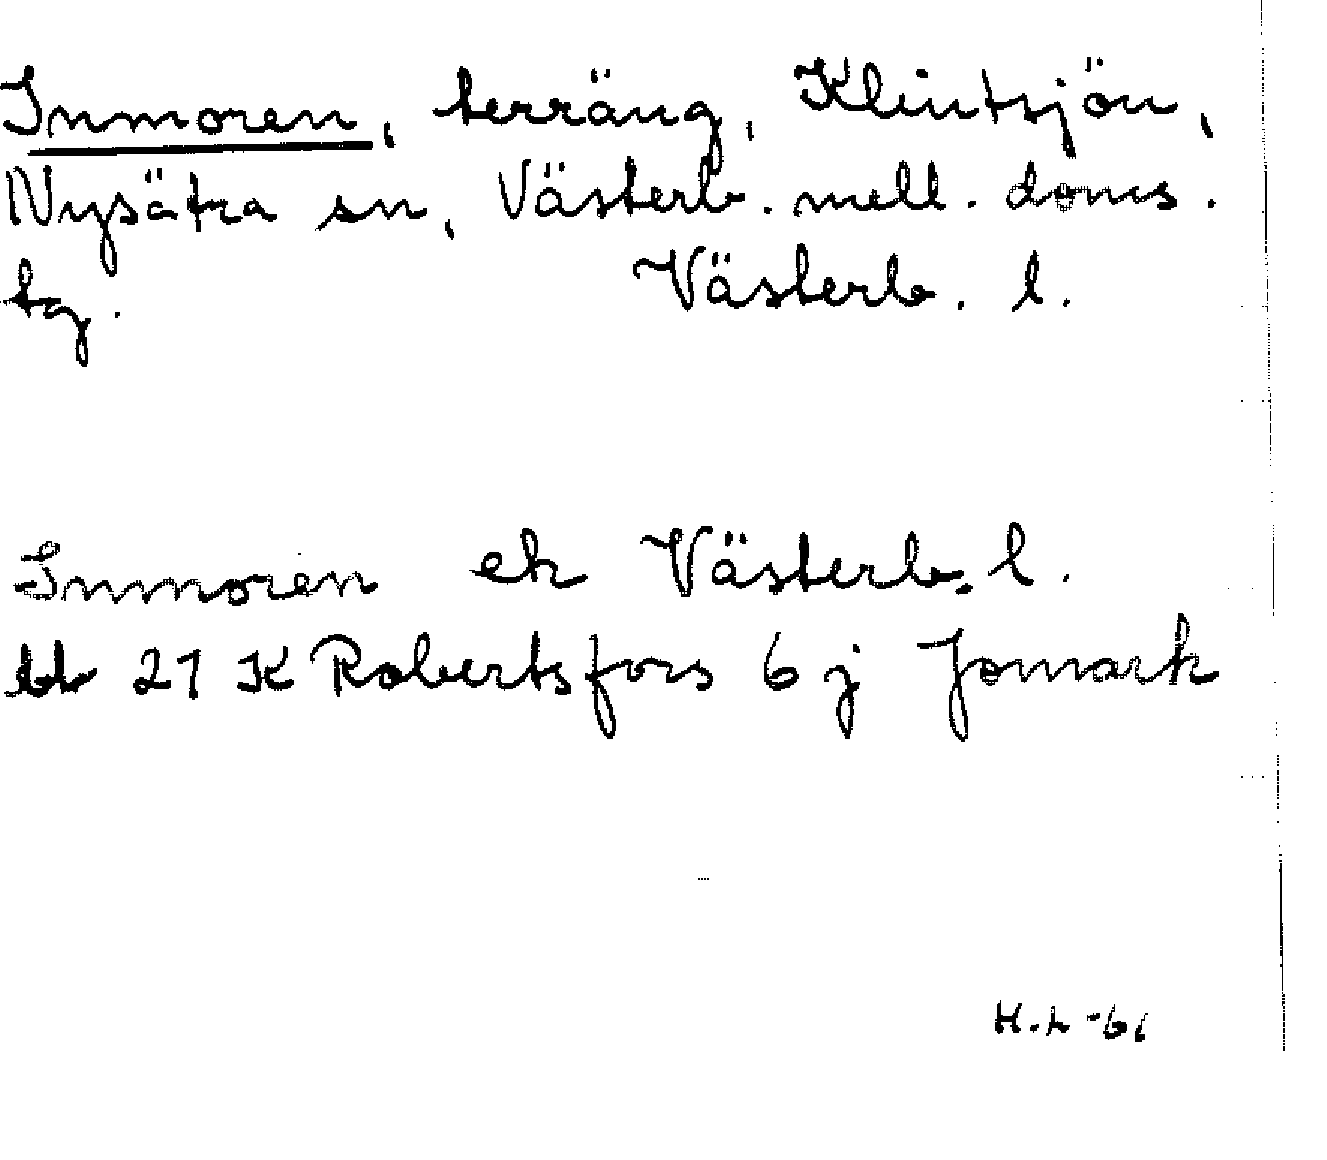 Inmoren, terräng, Klintsjön,
Nysätra sn, Västerb. mell. doms.
tg. Västerb. l.
Inmoren ek Västerb. l.
bl 21 K Robertsfors 6 j Jomark
H.L -61